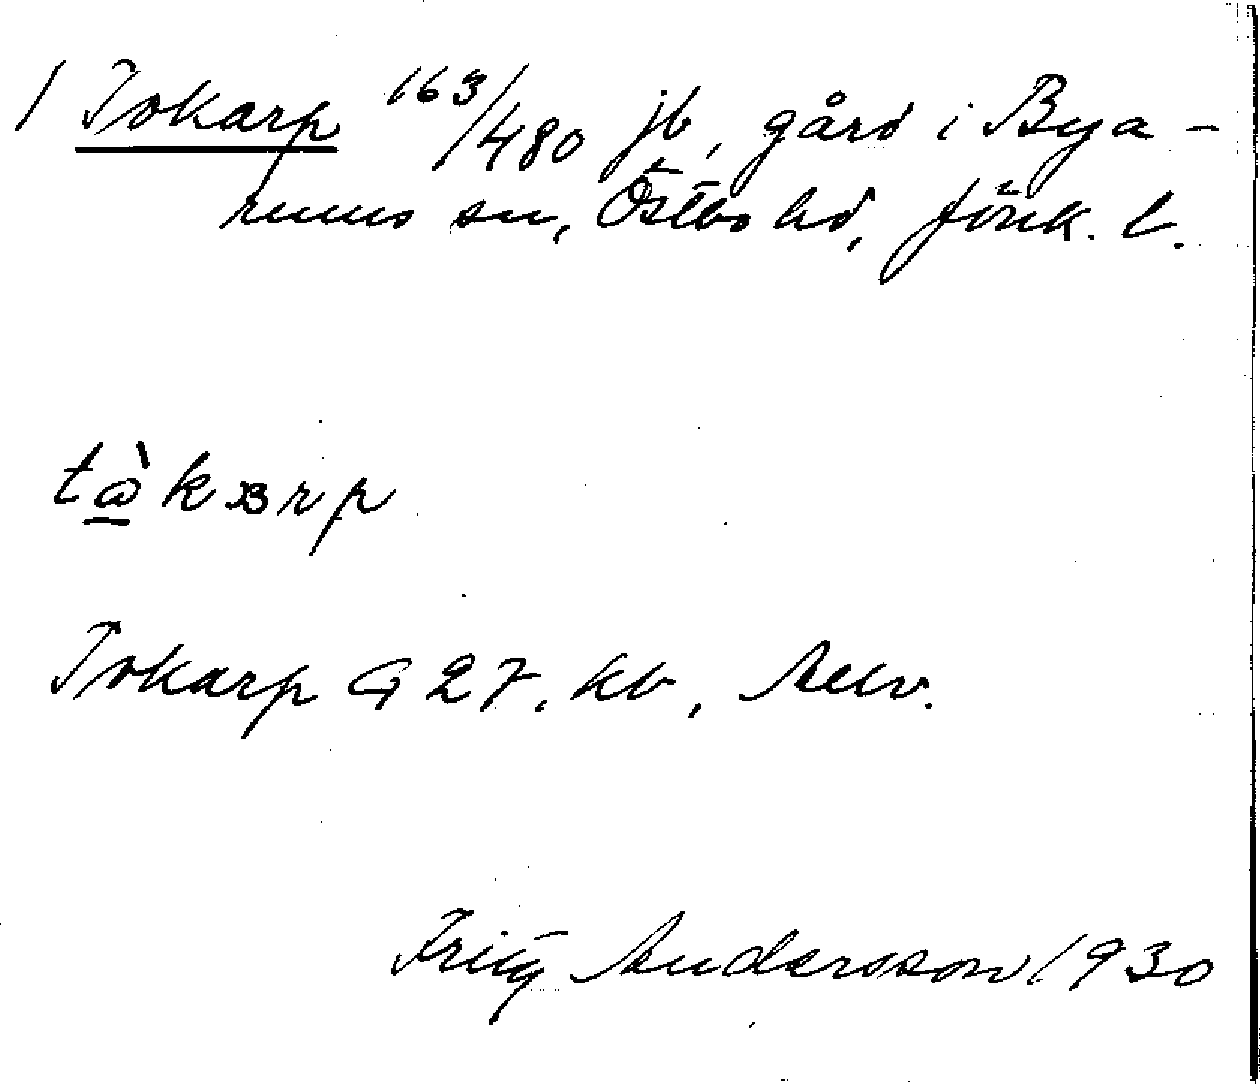 1 Tokarp 163/480 jb, gård i Bya-
rums sn, Östbo hd, Jönk. l.
Tokarp G 27. kb,
Fritz Andersson 1930